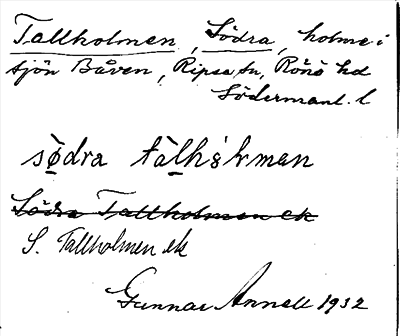 Tallholmen, Södra, holme i
sjön Båven, Ripsa sn, Rönö hd
Södermanl. l
södra
Södra Tallholmen ek
S. Tallholmen ek
Gunnar Annell 1932